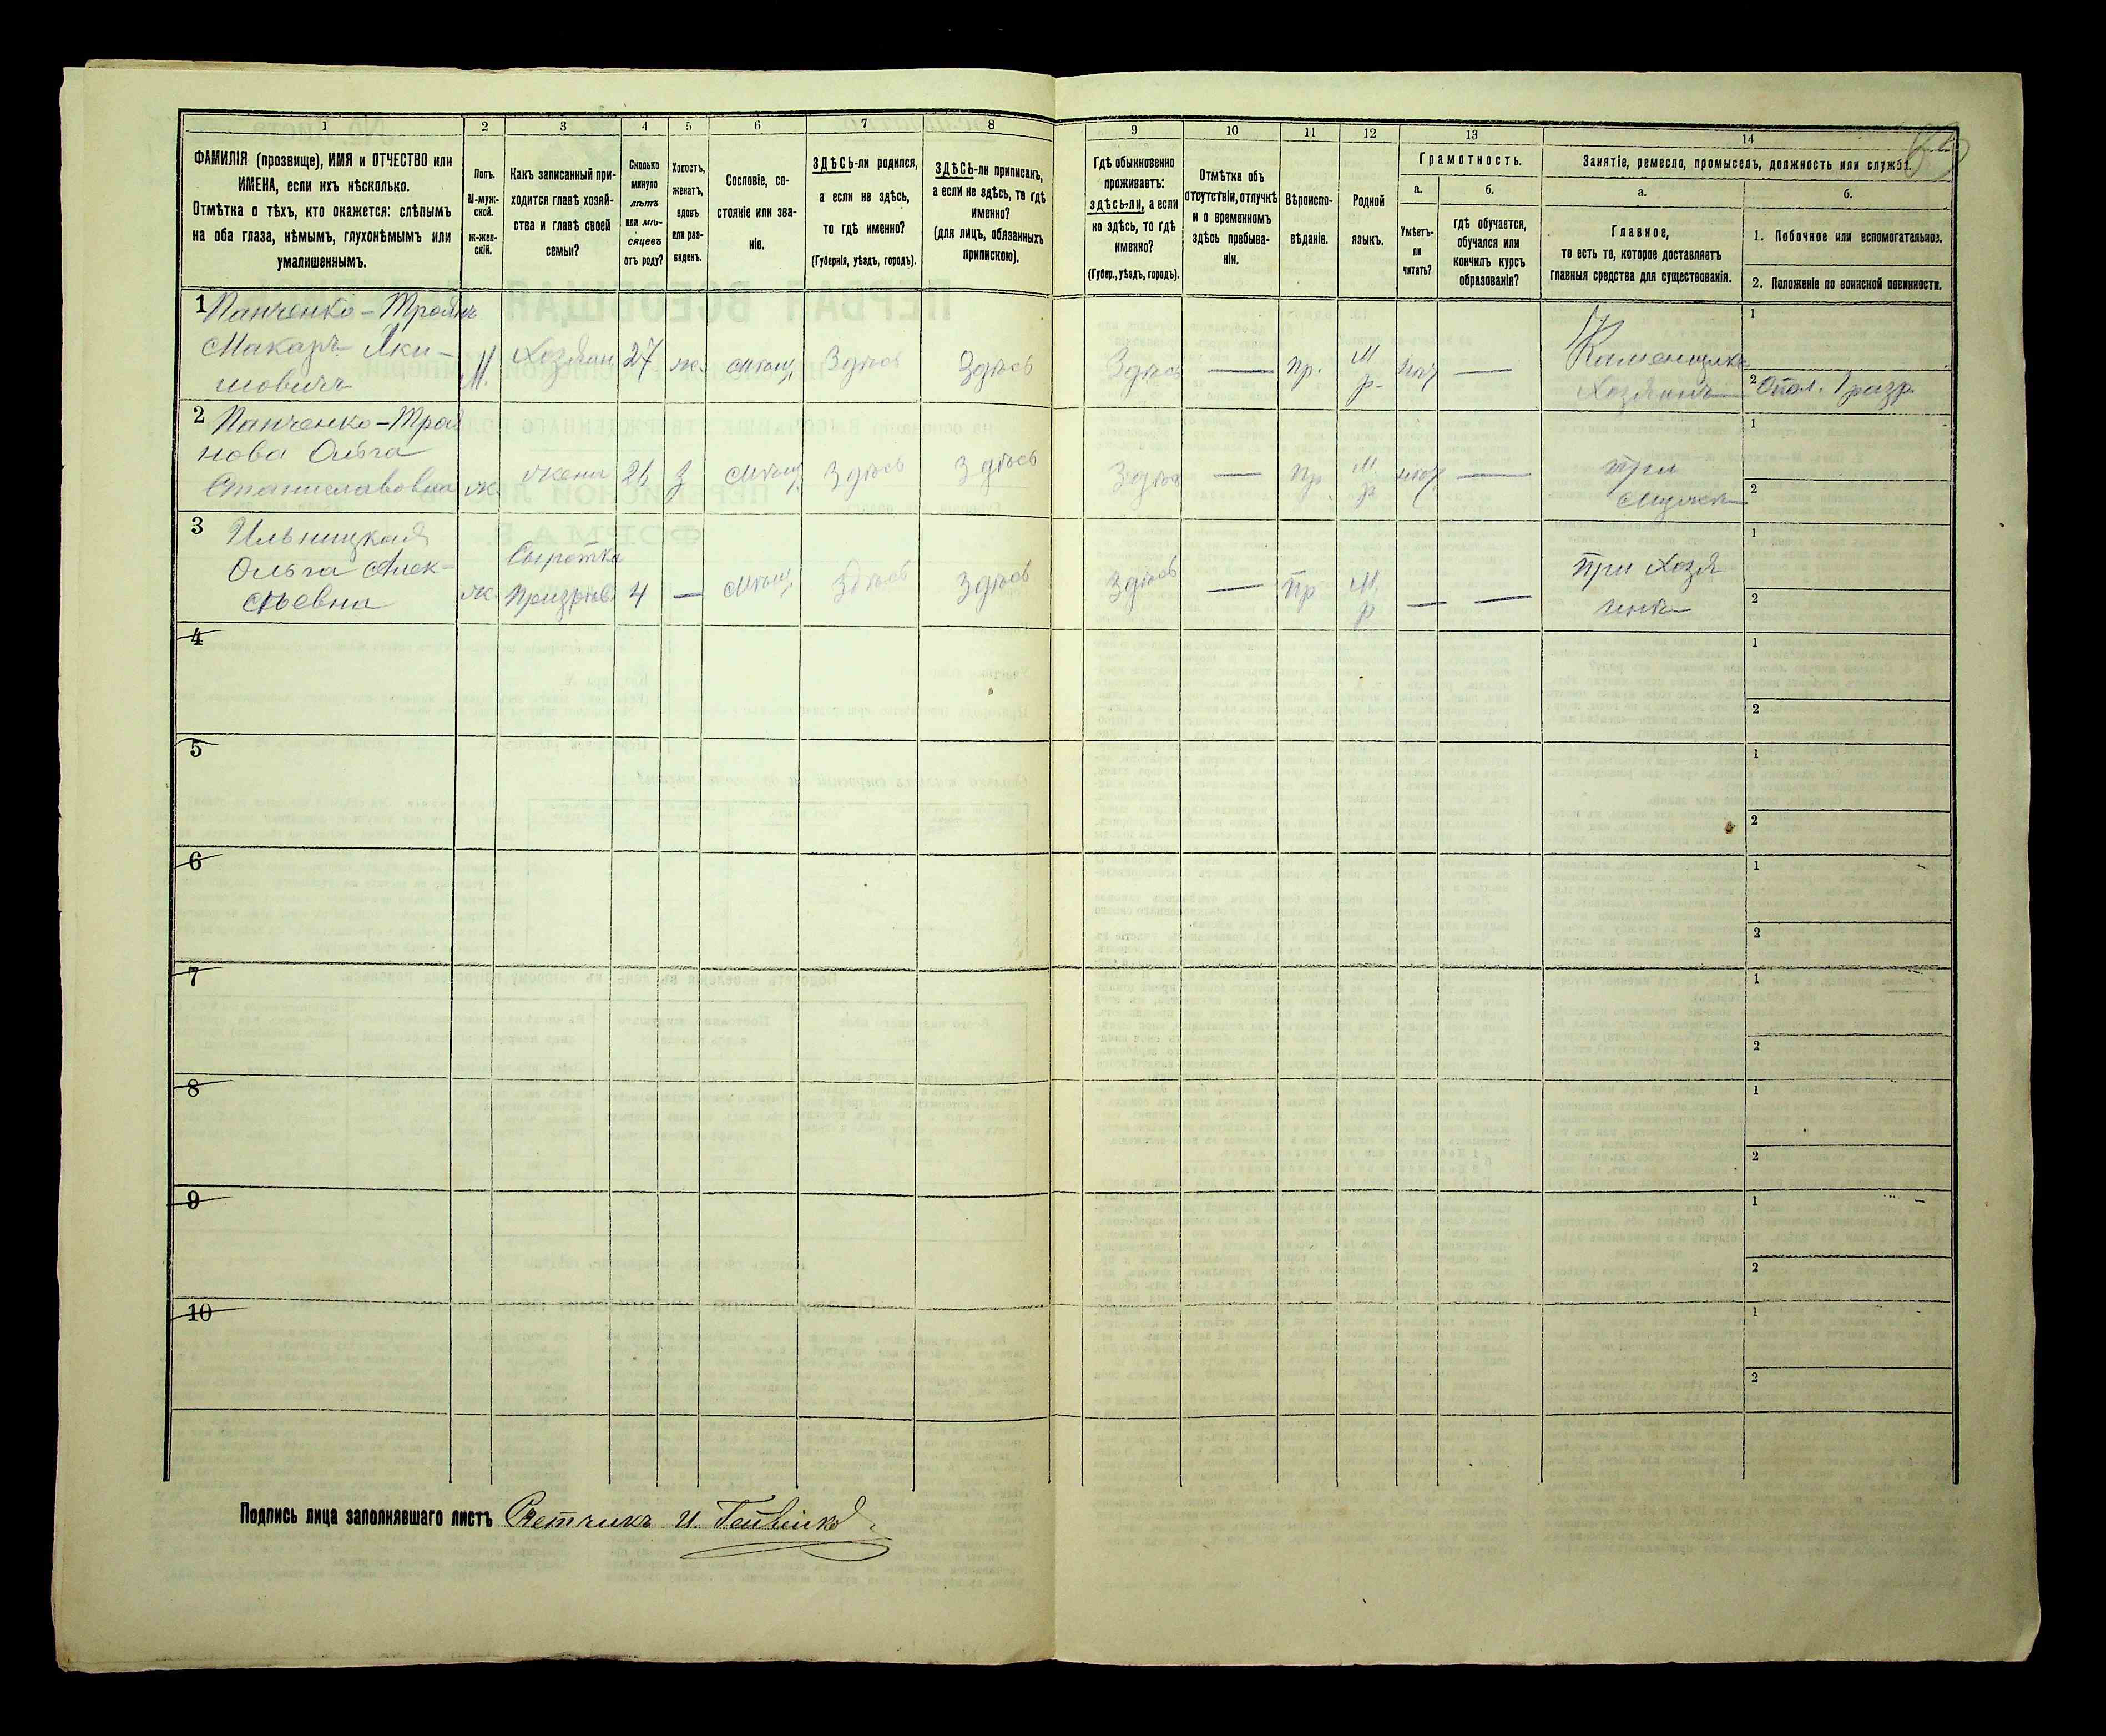 1 2 3 4 5 6 7 8 9 10 11 12 13 14
ФАМИЛІЯ (прозвище), ИМЯ и ОТЧЕСТВО или
ИМЕНА, если ихъ нѣсколько.
Отмѣтка о тѣхъ, кто окажется: слѣпымъ
на оба глаза, нѣмымъ, глухонѣмымъ или
умалишеннымъ.
Полъ.
М-муж-
ской.
Ж-жен-
скій.
Какъ записанный при-
ходится главѣ хозяй-
ства и главѣ своей
семьи?
Сколько
минуло
лѣтъ
или мѣ-
сяцевъ
отъ роду?
Холостъ,
женатъ,
вдовъ
или раз-
веденъ.
Сословіе, со-
стояніе или зва-
ніе.
ЗДѢСЬ-ли родился,
а если не здѣсь,
то гдѣ именно?
(Губернія, уѣздъ, городъ).
ЗДѢСЬ-ли приписанъ,
а если не здѣсь, то гдѣ
именно?
(для лицъ, обязанныхъ
припискою).
Гдѣ обыкновенно
проживаетъ:
здѣсь-ли, а если
не здѣсь, то гдѣ
именно?
(Губер., уѣздъ, городъ).
Отмѣтка объ
отсутствіи, отлучкѣ
и о временномъ
здѣсь пребыва-
ніи.
Вѣроиспо-
вѣданіе.
Родной
языкъ.
Грамотность.
а.
Умѣетъ-
ли
читать?
б.
гдѣ обучается,
обучался или
кончилъ курсъ
образованія?
Занятіе, ремесло, промыселъ, должность или служба.
а.
Главное,
то есть то, которое доставляетъ
главныя средства для существованія.
б.
1. Побочное или вспомогательное.
2. Положеніе по воинской повинности.
1 Панченко-Троянъ
Макаръ Яки-
мовичъ
М. Хозяин 27 ж. мѣщ. Здѣсь Здѣсь Здѣсь — пр. М р. —
Каменщикъ
Хозяинъ
1
2 Опол. 1 разр.
2 Панченко-Троя
нова Ольга
Станиславовна
ж. жена 26 З мѣщ. Здѣсь Здѣсь Здѣсь — пр. М р —
при
мужѣ
1
2
3 Ильницкая
Ольга Алек-
сѣевна
ж. Сыротка
Призрѣв. 4 — мѣщ. Здѣсь Здѣсь Здѣсь — пр М. р — —
При Хозя
инѣ
1
2
4 1
2
5 1
2
6 1
2
7 1
2
8 1
2
9 1
2
10 1
2
Подпись лица заполнявшаго листъ Счетчикъ И.